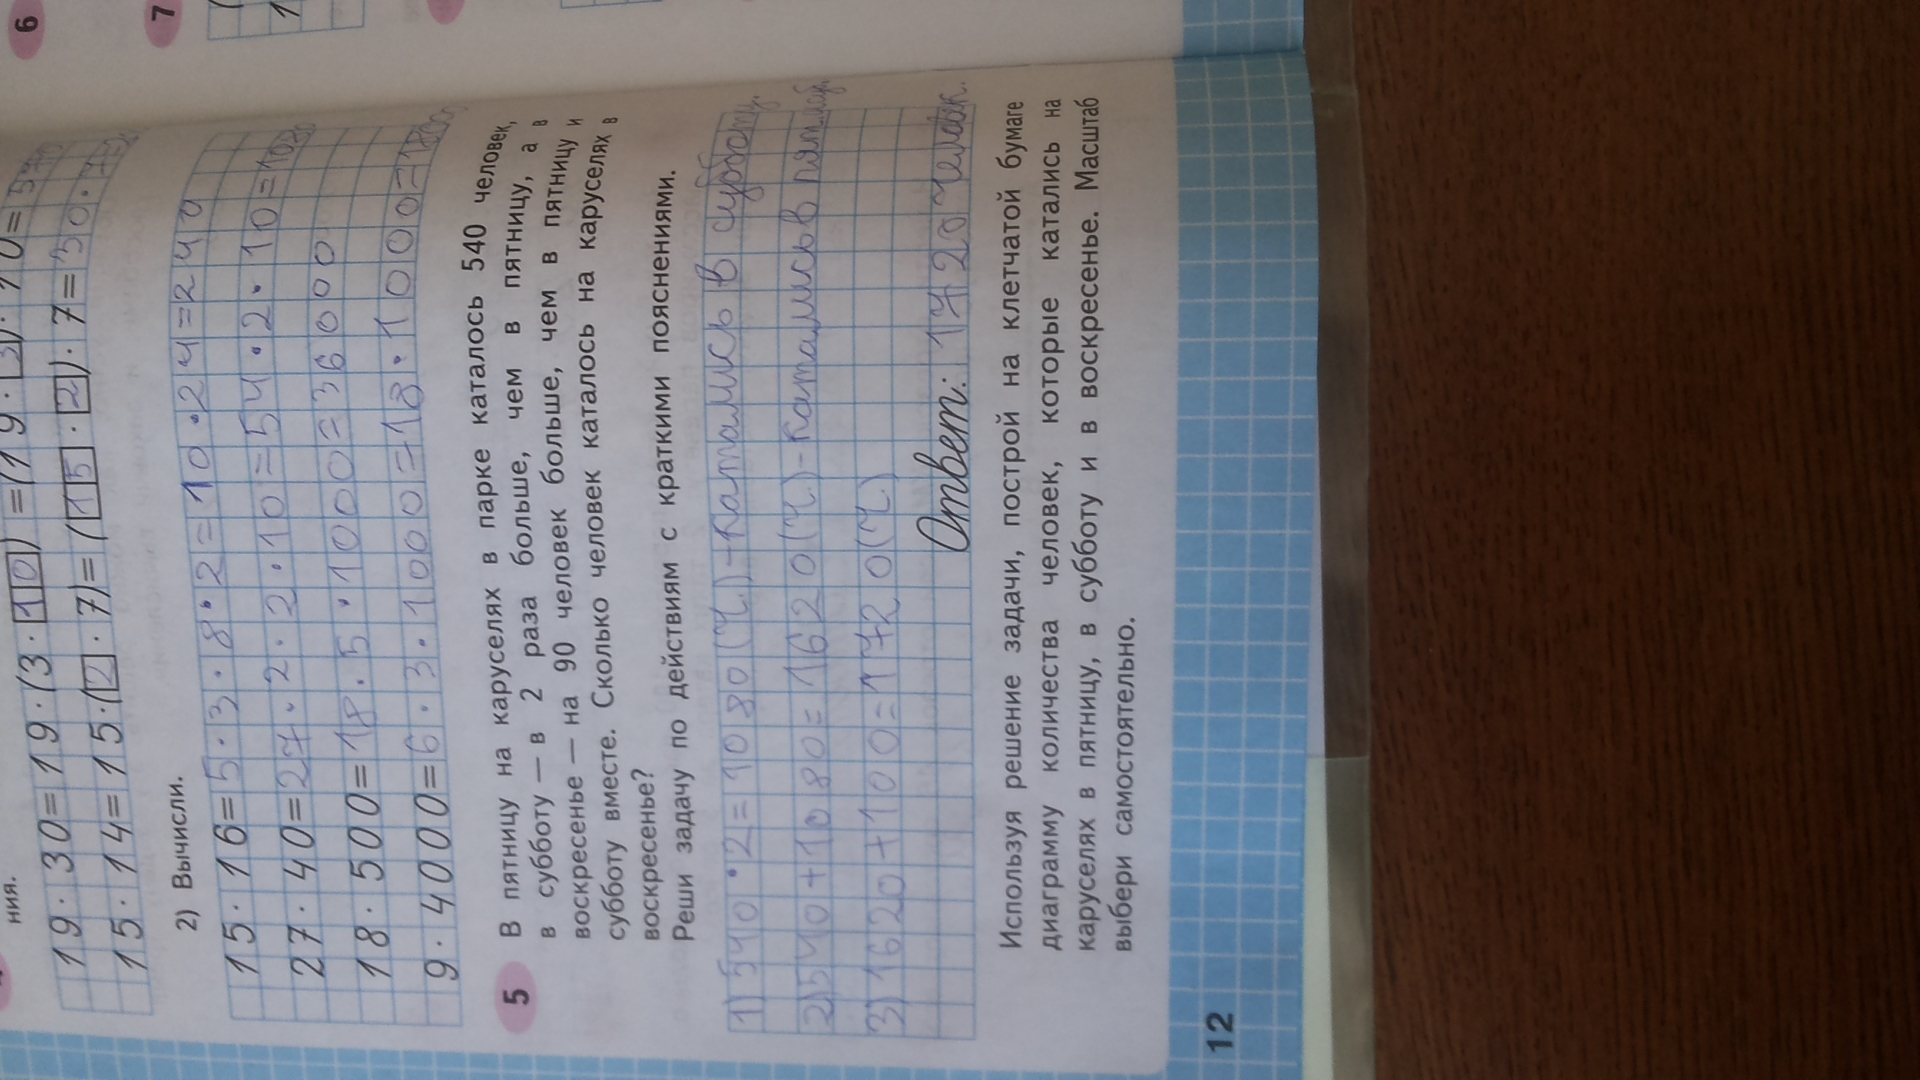 6
7
ния.
19 · 30 = 19 · (3 · 10) = (19 · 3) · 10 =
15 · 14 = 15 · (2 · 7) = (15 · 2) · 7 = 30 · 7 =
2) Вычисли.
15 · 16 = 5 · 3 · 8 · 2 = 10 · 24 = 240
27 · 40 = 27 · 2 · 2 · 10 = 54 · 2 · 10 = 1080
18 · 500 = 18 · 5 · 1000 = 36000
9 · 4000 = 6 · 3 · 1000 = 18 · 1000 =
5 В пятницу на каруселях в парке каталось 540 человек,
в субботу — в 2 раза больше, чем в пятницу, а в
воскресенье — на 90 человек больше, чем в пятницу и
субботу вместе. Сколько человек каталось на каруселях в
воскресенье?
Реши задачу по действиям с краткими пояснениями.
1) 540 · 2 = 1080 (ч.) - катались в субботу.
2) 540 + 1080 = 1620 (ч.) - катались в
3) 1620 + 100 = 1720 (ч.)
Ответ: 1720 человек.
Используя решение задачи, построй на клетчатой бумаге
диаграмму количества человек, которые катались на
каруселях в пятницу, в субботу и в воскресенье. Масштаб
выбери самостоятельно.
12